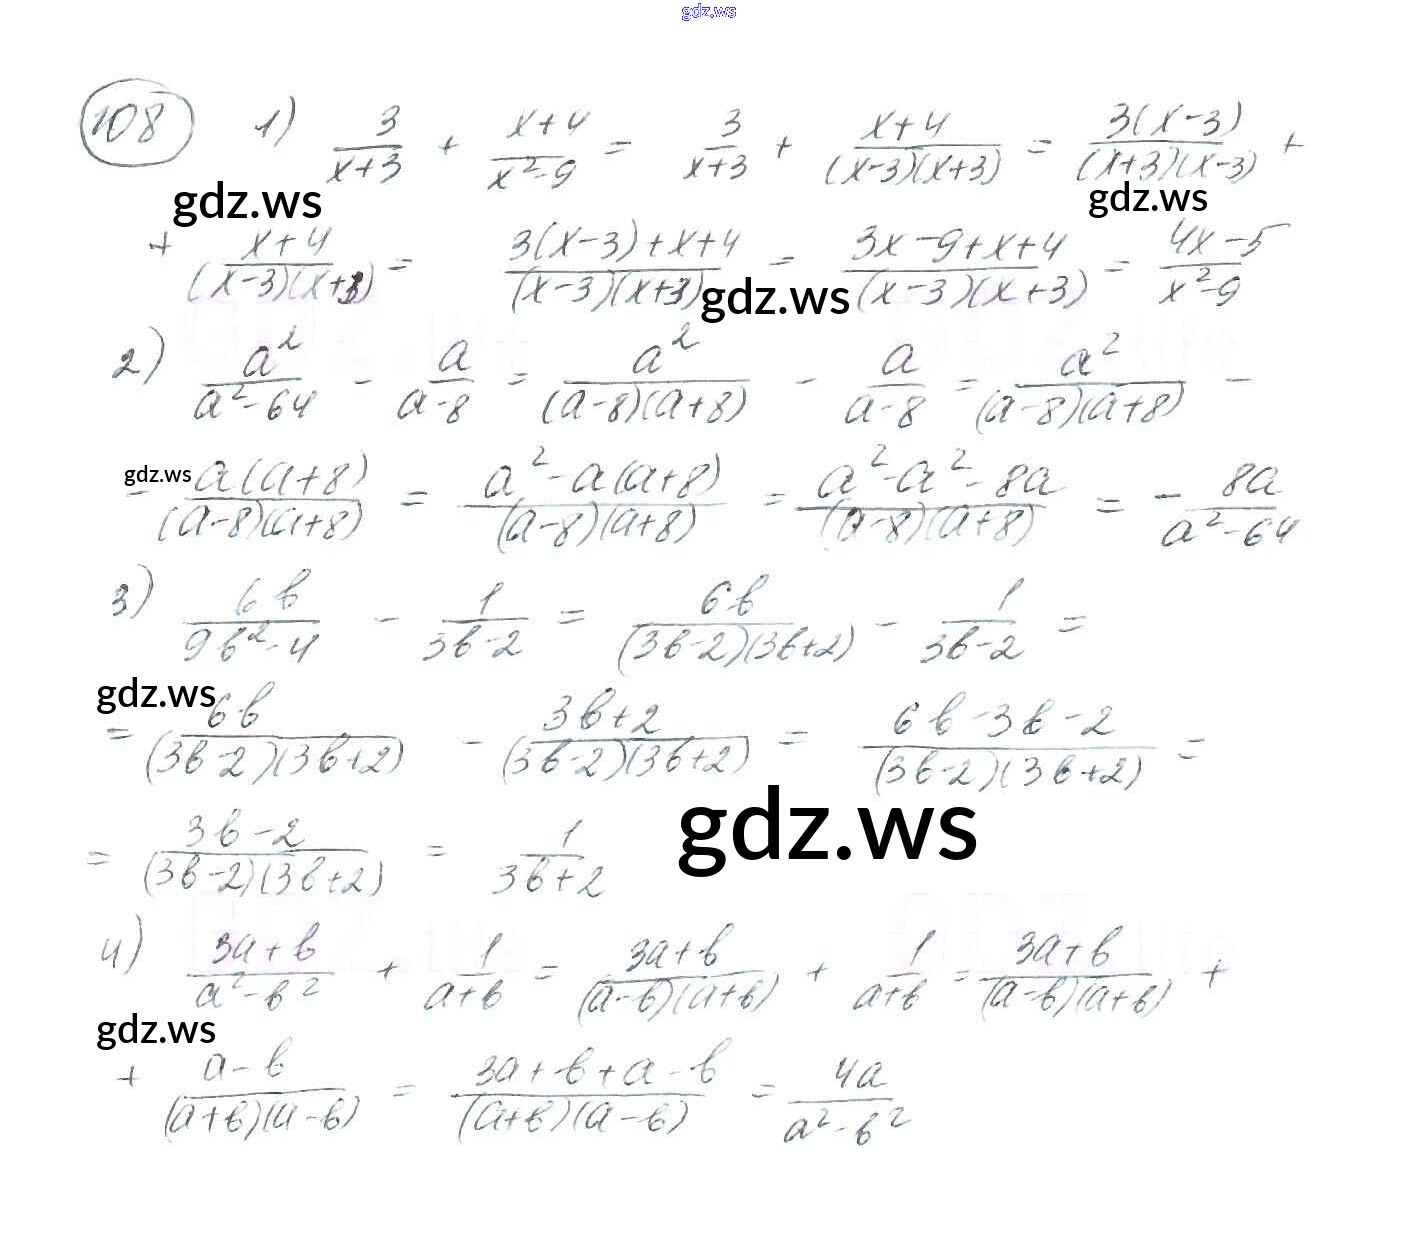 gdz.ws
108 1) 3/(x+3) + (x+4)/(x²-9) = 3/(x+3) + (x+4)/((x-3)(x+3)) = 3(x-3)/((x+3)(x-3)) +
gdz.ws gdz.ws
+ (x+4)/((x-3)(x+3)) = (3(x-3)+x+4)/((x-3)(x+3)) = (3x-9+x+4)/((x-3)(x+3)) = (4x-5)/(x²-9)
gdz.ws
2) a²/(a²-64) - a/(a-8) = a²/((a-8)(a+8)) - a/(a-8) = a²/((a-8)(a+8)) -
gdz.ws
- a(a+8)/((a-8)(a+8)) = (a²-a(a+8))/((a-8)(a+8)) = (a²-a²-8a)/((a-8)(a+8)) = - 8a/(a²-64)
3) 6b/(9b²-4) - 1/(3b-2) = 6b/((3b-2)(3b+2)) - 1/(3b-2) =
gdz.ws
= 6b/((3b-2)(3b+2)) - (3b+2)/((3b-2)(3b+2)) = (6b-3b-2)/((3b-2)(3b+2)) =
gdz.ws
= (3b-2)/((3b-2)(3b+2)) = 1/(3b+2)
4) (3a+b)/(a²-b²) + 1/(a+b) = (3a+b)/((a-b)(a+b)) + 1/(a+b) = (3a+b)/((a-b)(a+b)) +
gdz.ws
+ (a-b)/((a+b)(a-b)) = (3a+b+a-b)/((a+b)(a-b)) = 4a/(a²-b²)